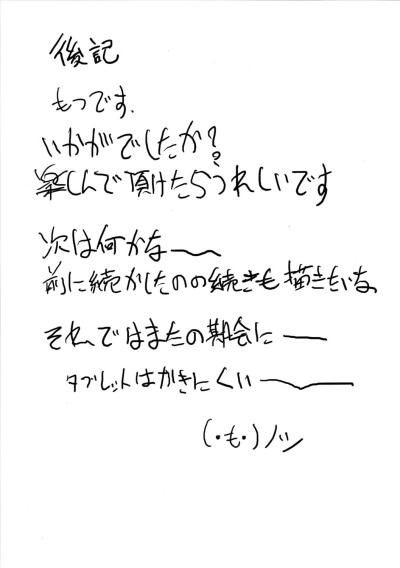 後記
もっです.
いかがでしたか?
楽しんで頂けたらうれしいです
次は何かな〜
前に続かしたのの続きも描きたいな。
それではまたの期会に―
タブレットはかきにくい―
(・も・)ノシ